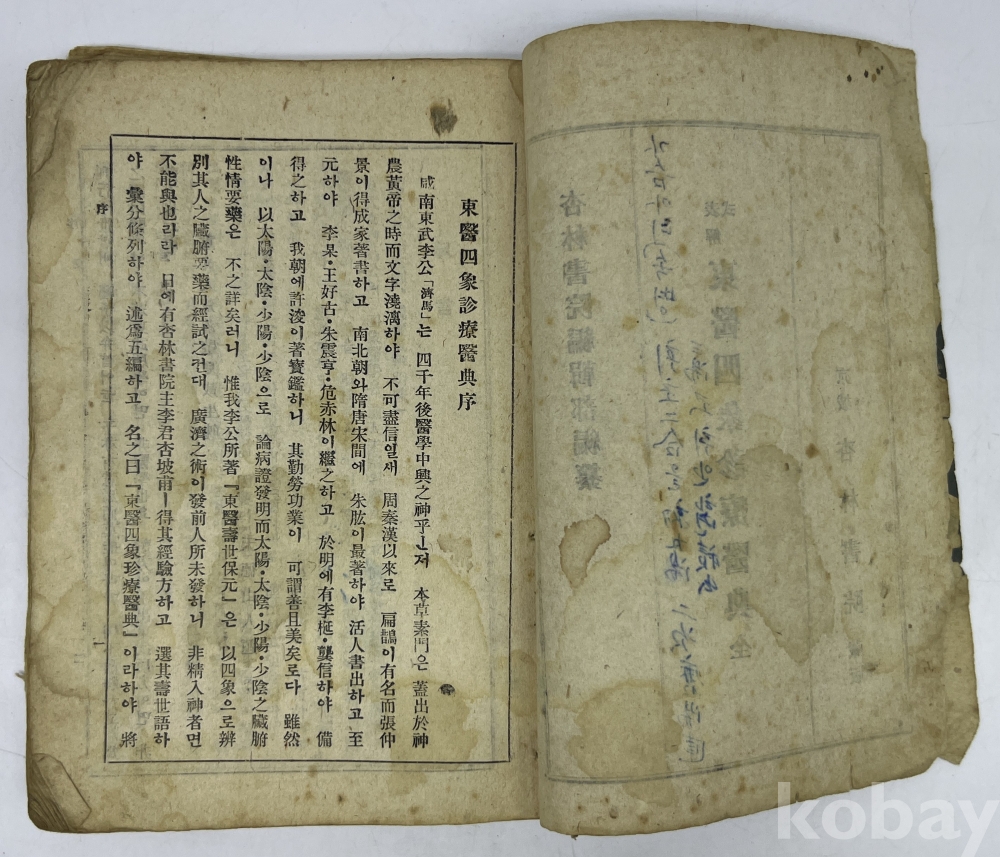 東醫四象診療醫典序
咸南東武李公「濟馬」는 四千年後醫學中興之神乎ㄴ저 本草素門은 蓋出於神
農黃帝之時而文字澆漓하야 不可盡信일새 周秦漢以來로 扁鵲이有名而張仲
景이得成家著書하고 南北朝와隋唐宋間에 朱肱이最著하야 活人書出하고 至
元하야 李杲·王好古·朱震亨·危赤林이繼之하고 於明에有李梴·龔信하야 備
得之하고 我朝에許浚이著寶鑑하니 其勤勞功業이 可謂善且美矣로다 雖然
이나 以太陽·太陰·少陽·少陰으로 論病證發明而太陽·太陰·少陽·少陰之臟腑
性情要藥은 不之詳矣러니 惟我李公所著『東醫壽世保元』은 以四象으로辨
別其人之臟腑要藥而經試之컨대 廣濟之術이發前人所未發하니 非精入神者면
不能與也라라 日에有杏林書院主李君杏坡甫ㅣ得其經驗方하고 選其壽世語하
야 彙分條列하야 述爲五編하고 名之曰『東醫四象珍療醫典』이라하야 將
序
一
杏林書院編輯部編纂
東醫四象珍療醫典 全
杏林書院
kobay